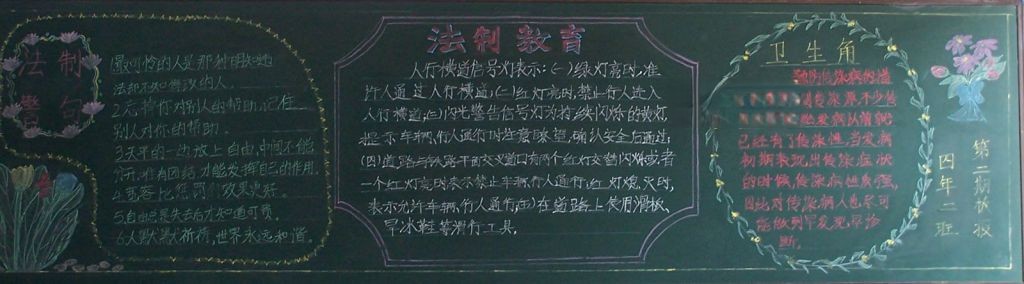 法制
警句
1最可怜的人是那种明知地
法却不知悔改的人.
2.忘掉你对别人的帮助,记住
别人对你的帮助.
3天平的一边放上自由,中间不能
作用.
4.宽容比惩罚效果更好.
5自由总是失去后才知道可贵.
6.人默默祈祷,世界永远和谐.
法制教育
人行横道信号灯表示:(一)绿灯亮时,准
许人通过人行横道;(二)红灯亮时,禁止行人进入
人行横道;(三)闪光警告信号灯为持续闪烁的黄灯,
提示车辆,行人通行时注意瞭望,确认安全后通过;
(四)道路与铁路平面交叉道口有两个红灯交替闪烁或者
一个红灯亮时,表示禁止车辆,行人通行;红灯熄灭时,
表示允许车辆,行人通行;(五)在道路上使用滑板,
旱冰鞋等滑行工具.
卫生角
预防传染病的措
传染源不少传
发病以前就
已经有了传染性,当发病
初期表现出传染症状
的时候,传染病性最强,
因此对传染病人也尽可
能做到早发现,早诊
断.
第二期板报
四年二班